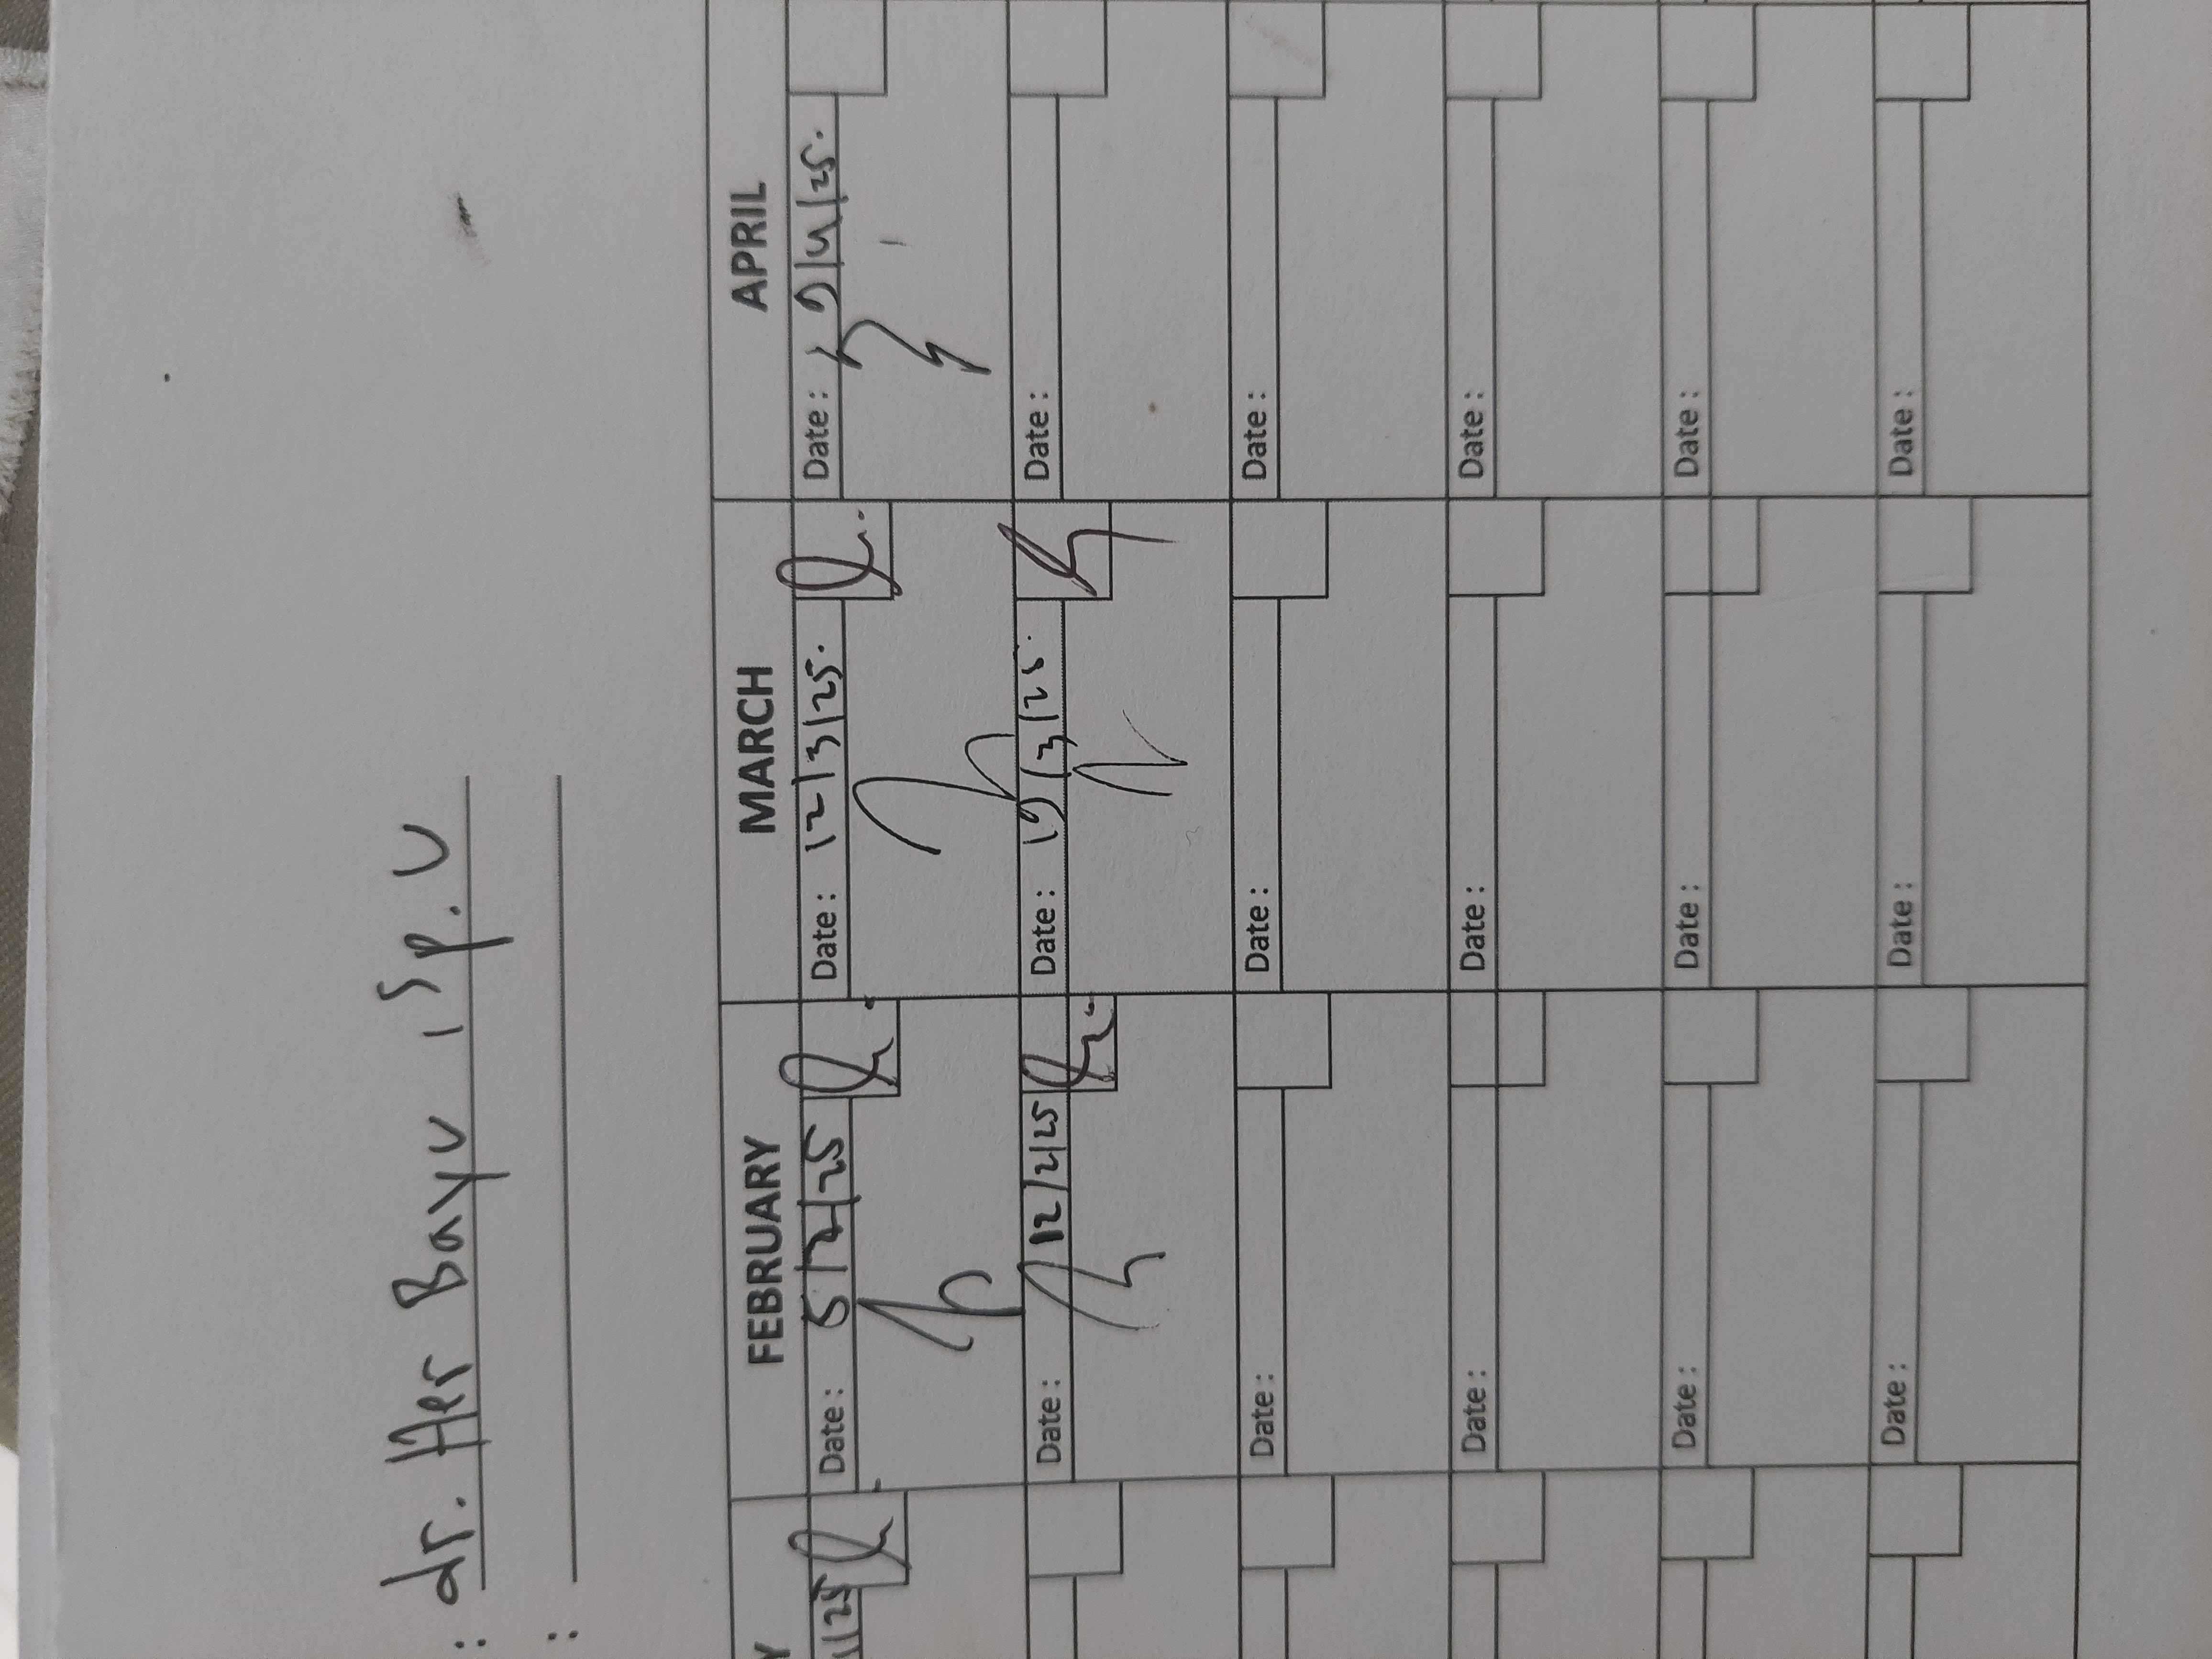 : dr. Her Bayu , Sp. U
:
Y FEBRUARY MARCH APRIL
1/25 Date: 5/2/25 Date: 12/3/25. Date: 9/4/25.
Date: 12/2/25 Date: 19/3/25. Date:
Date: Date: Date:
Date: Date: Date:
Date: Date: Date:
Date: Date: Date: